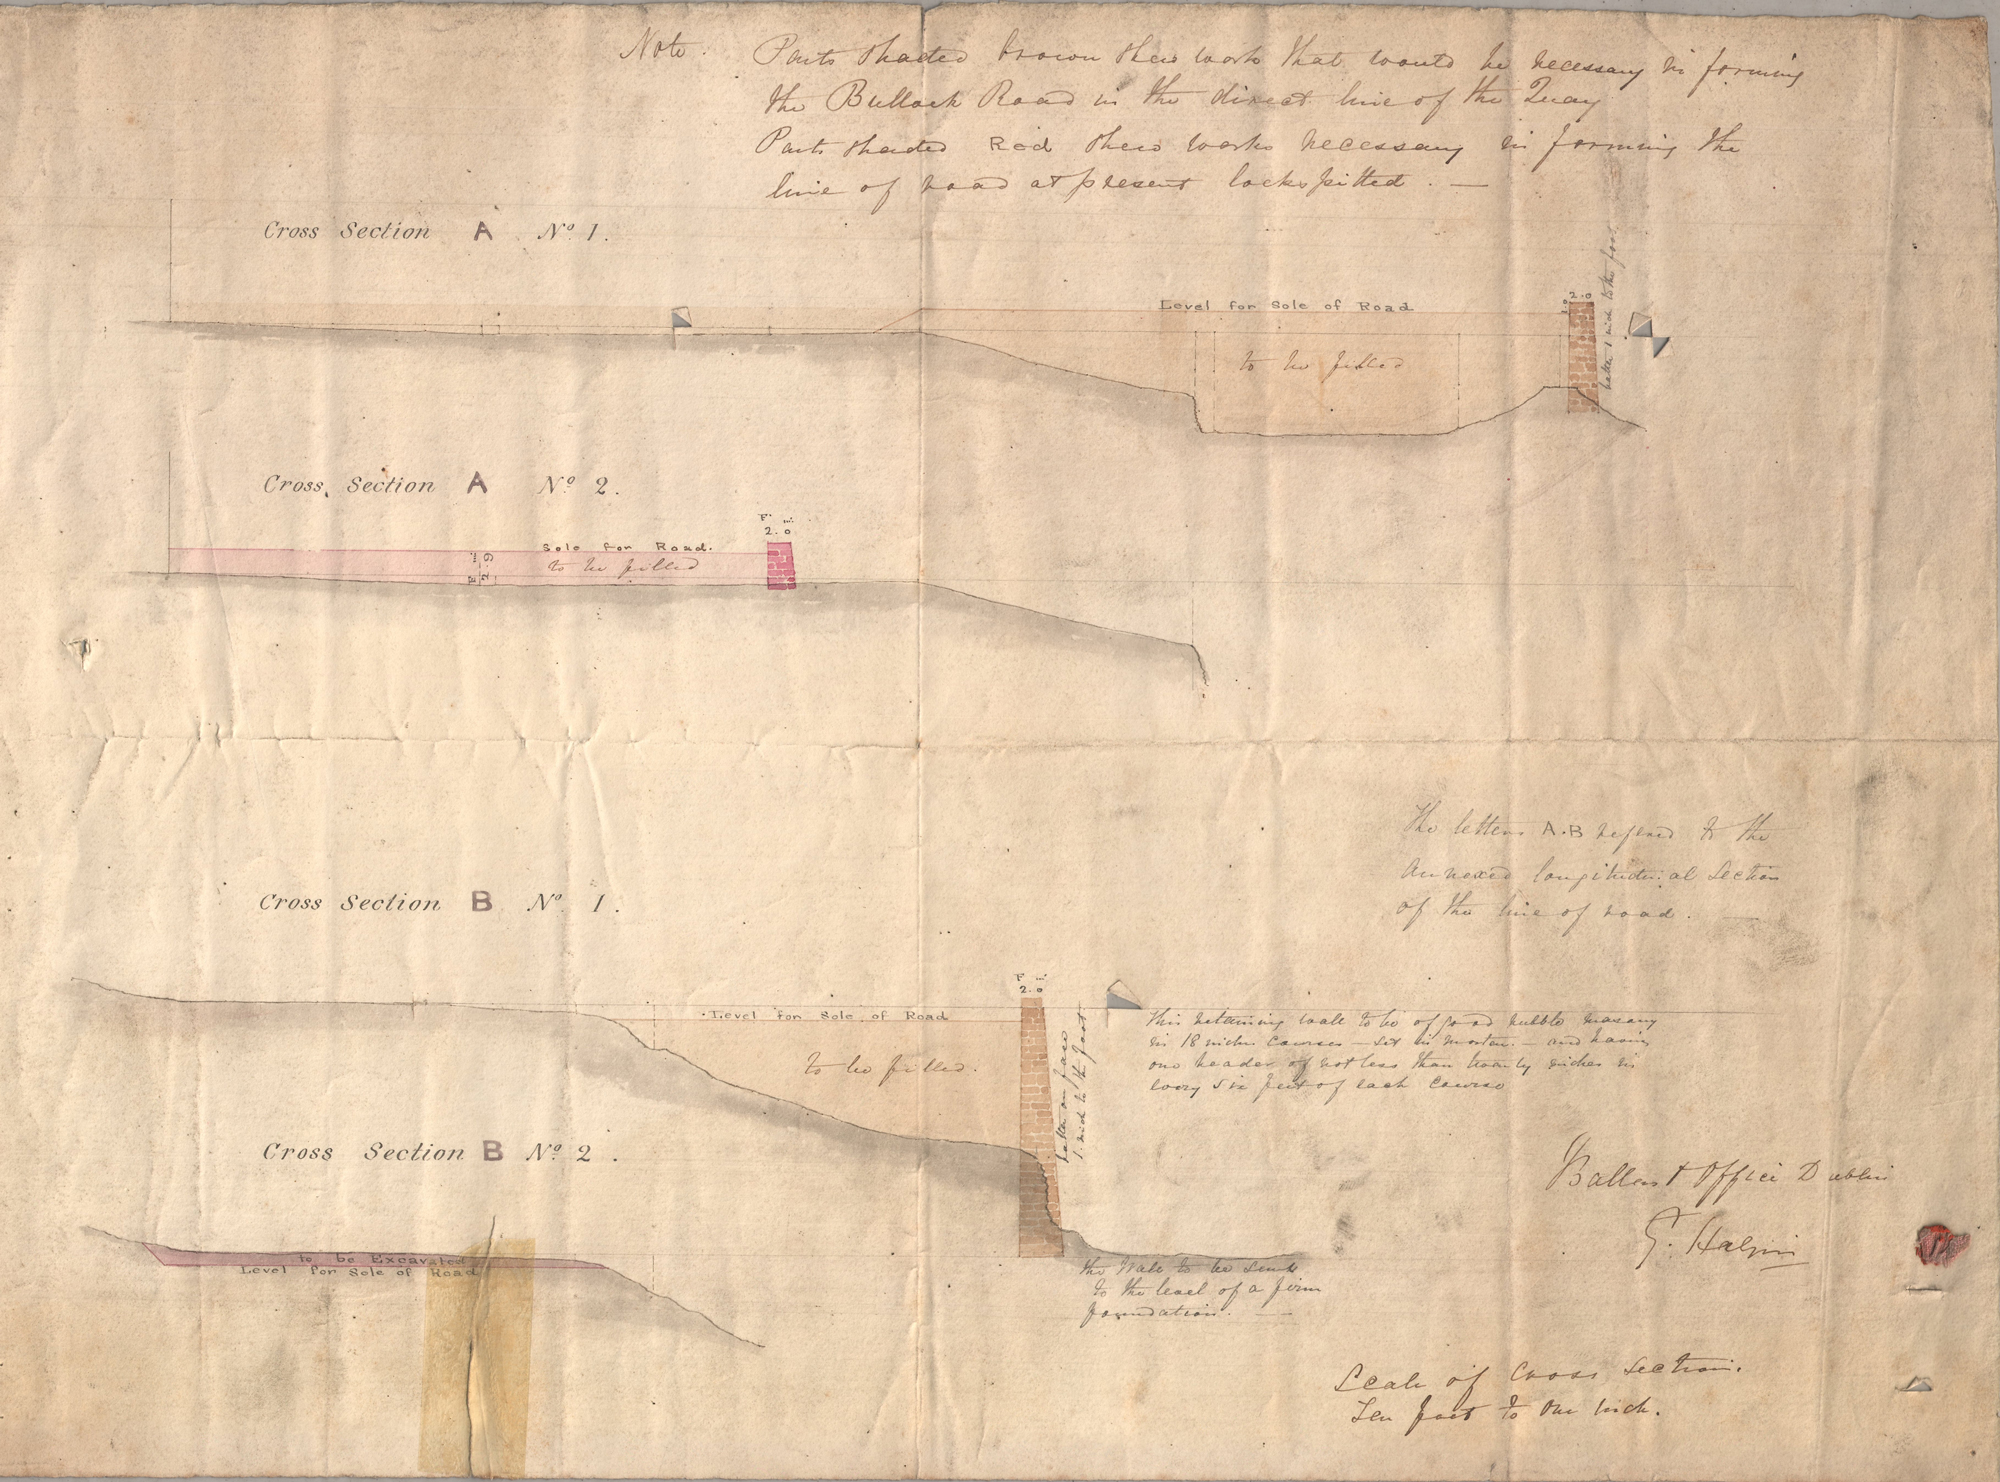 Note. Parts shaded brown shew work that would be necessary in forming
the Bullock Road in the direct line of the Quay
Parts shaded Red shew works necessary in forming the
line of road at present lockspitted. —
Cross Section A No. 1.
Level for Sole of Road
to be filled
2.0
batter 1 inch to the foot
Cross Section A No. 2.
F. in.
2.0
Sole for Road.
to be filled
F. in.
2.9
The letters A.B refered to the
Annexed longitudinal Section
of the line of road. —
Cross Section B No. 1.
F. in.
2.0
Level for Sole of Road
to be filled.
batter on face
1 inch to the foot
This retaining wall to be of good rubble masonry
in 18 inches Courses — set in mortar — and having
one header of not less than twenty inches in
every six feet of each Course
Cross Section B No. 2.
to be Excavated
Level for Sole of Road
the Wall to be sunk
to the level of a firm
foundation. —
Ballast Office Dublin
G. Halpin
Scale of Cross Section.
Ten feet to One Inch.